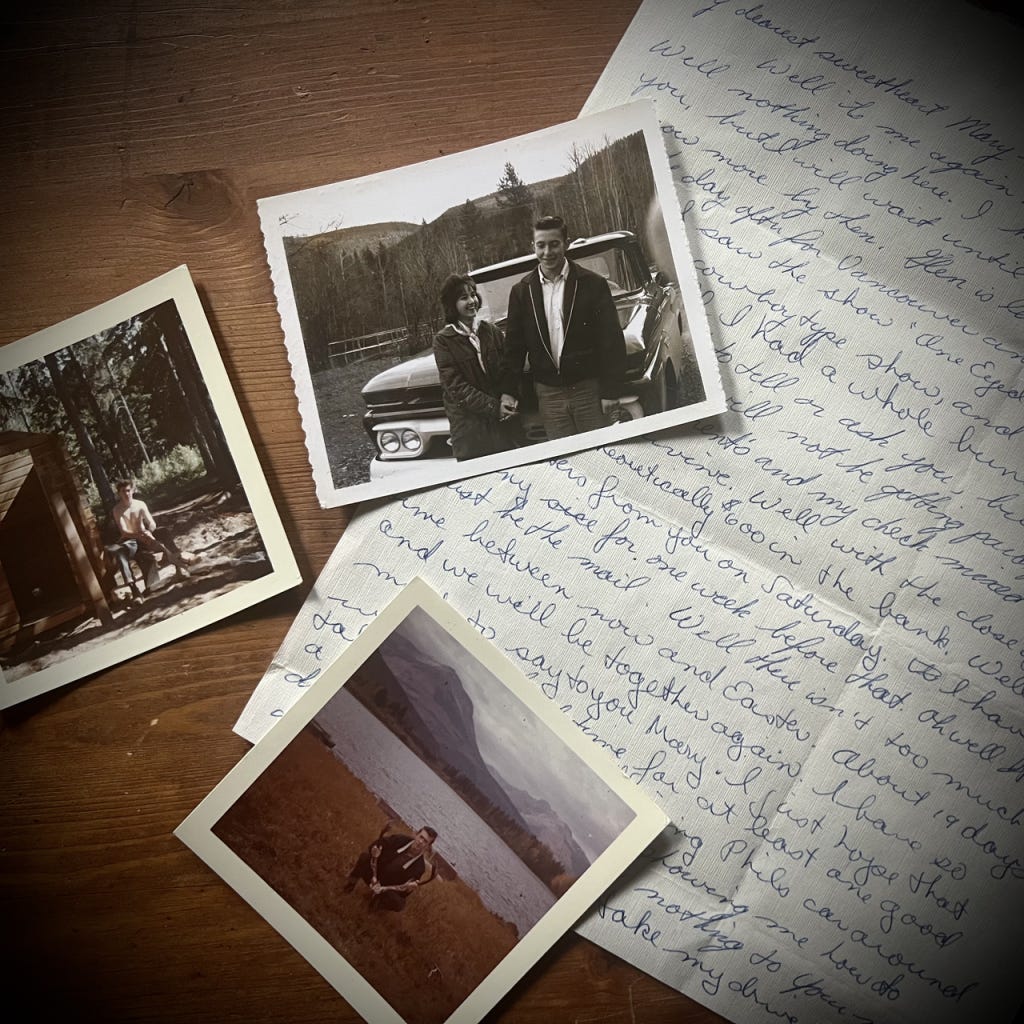 dearest sweetheart Mary
Well it me again
Well nothing doing here. I
you, but I will wait until
more by then. Glen is
day often for Vancouver an
I saw the show "One Eyed
cowboy type show, and
I Had a whole bun
to tell or ask you, bu
will not be getting paid
ents and my check missed
Well with the close
theoretically $600 in the bank. Well
ers from you on Saturday. Its I have
my size for one week before that. Oh well
ust be the mail. Well there isn't too much
ime between now and Easter. About 19 days
and we will be together again. I have so
m to say to you Mary. I just hope that
time for at least one good
a ing Phils car around
d howing me how to
nothing to you
take my drive